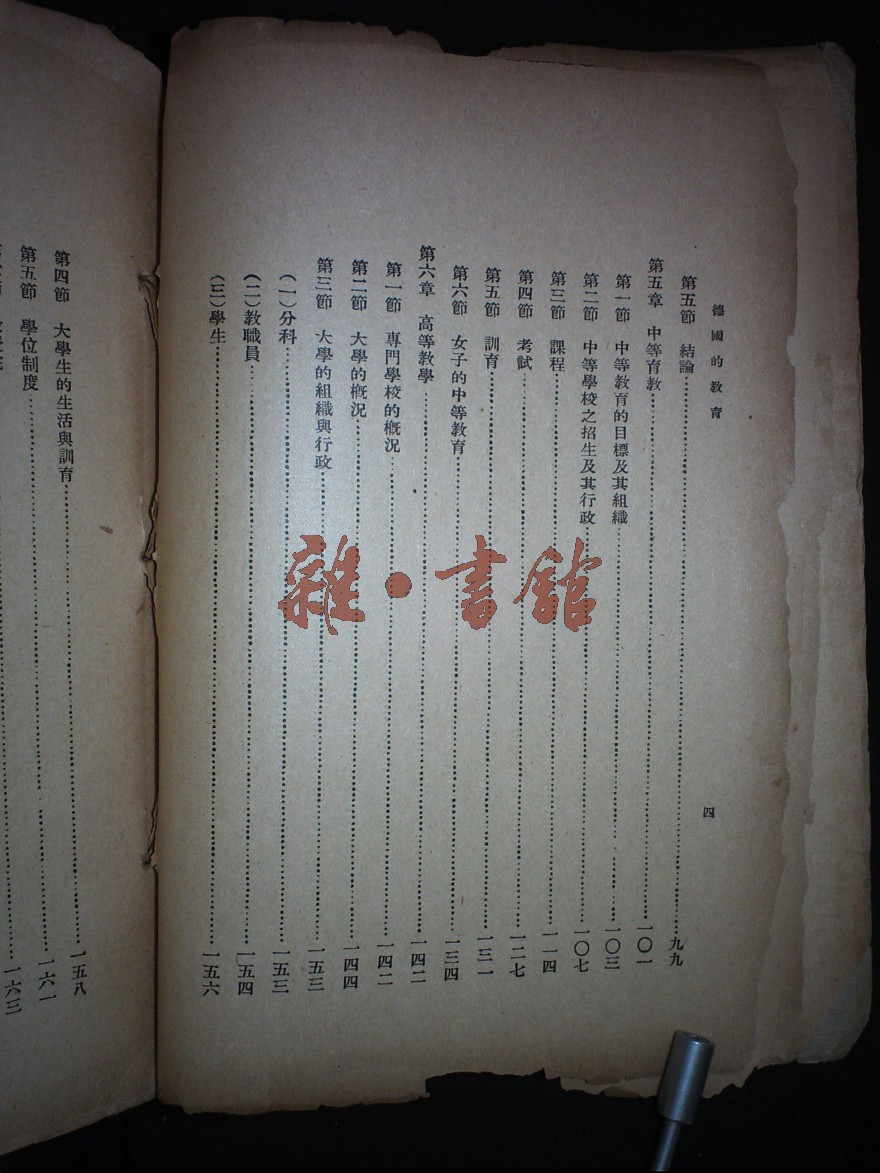 德國的教育
四
第五節 結論……九九
第五章 中等育教……一〇一
第一節 中等教育的目標及其組織……一〇三
第二節 中等學校之招生及其行政……一〇七
第三節 課程……一一四
第四節 考試……一二七
第五節 訓育……一三一
第六節 女子的中等教育……一三四
第六章 高等教學……一四二
第一節 專門學校的概況……一四二
第二節 大學的概況……一四四
第三節 大學的組織與行政……一五三
(一)分科……一五三
(二)教職員……一五四
(三)學生……一五六
第四節 大學生的生活與訓育……一五八
第五節 學位制度……一六一
一六三
雜·書館